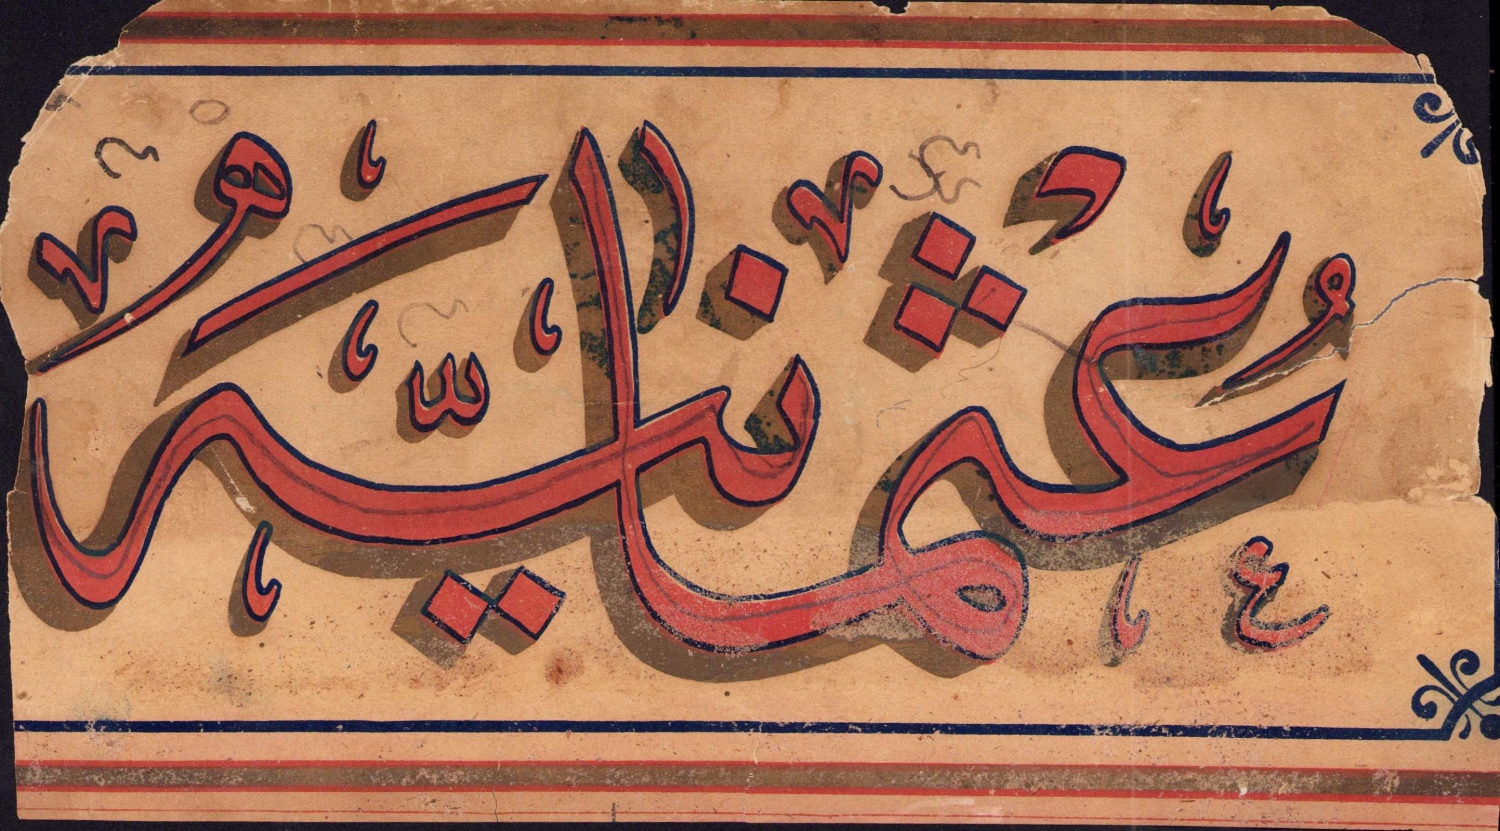 عُثمانيّه